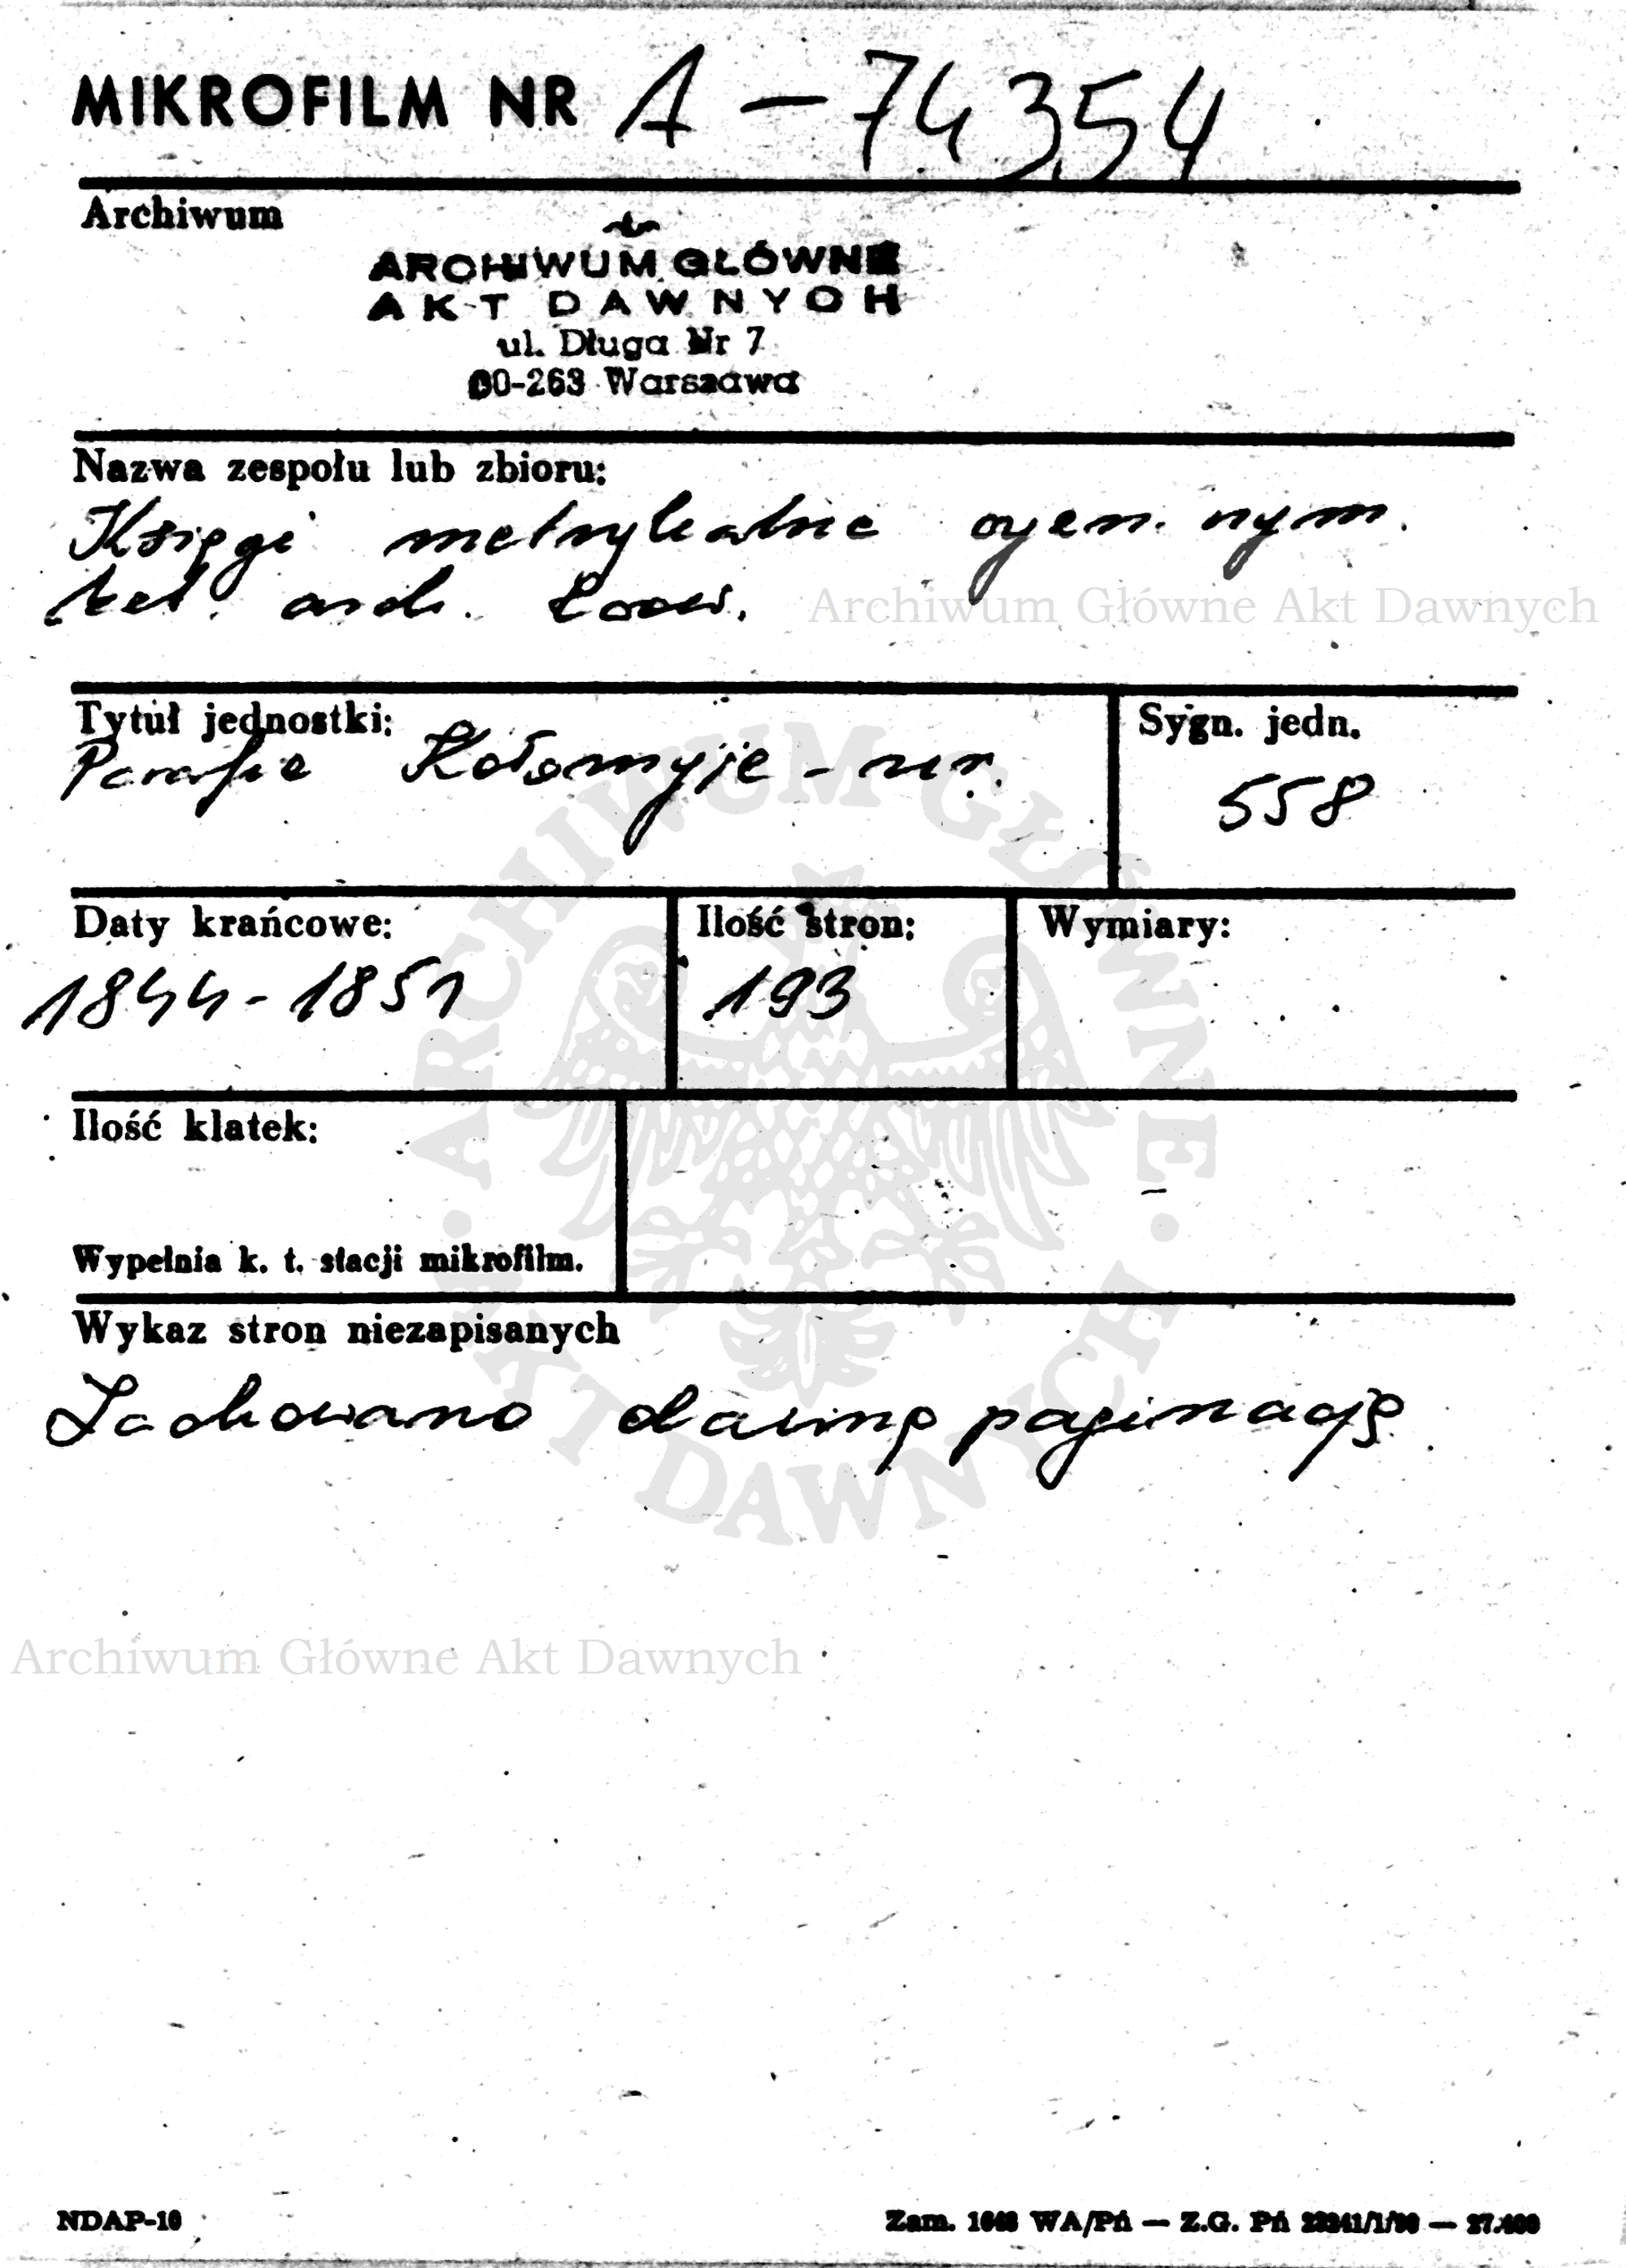 MIKROFILM NR A-74354
Archiwum
ARCHIWUM GŁÓWNE
AKT DAWNYCH
ul. Długa Nr 7
00-263 Warszawa
Nazwa zespołu lub zbioru:
Księgi metrykalne rzym.
kat. arch. Lwow.
Archiwum Główne Akt Dawnych
Tytuł jednostki:
Parafia Kołomyje - ur.
Sygn. jedn.
558
Daty krańcowe:
1844-1851
Ilość stron:
193
Wymiary:
Ilość klatek:
Wypełnia k. t. stacji mikrofilm.
ARCHIWUM GŁÓWNE
AKT DAWNYCH
Wykaz stron niezapisanych
Zachowano dawną paginację
Archiwum Główne Akt Dawnych
NDAP-10
Zam. WA/Pń — Z.G. Pń